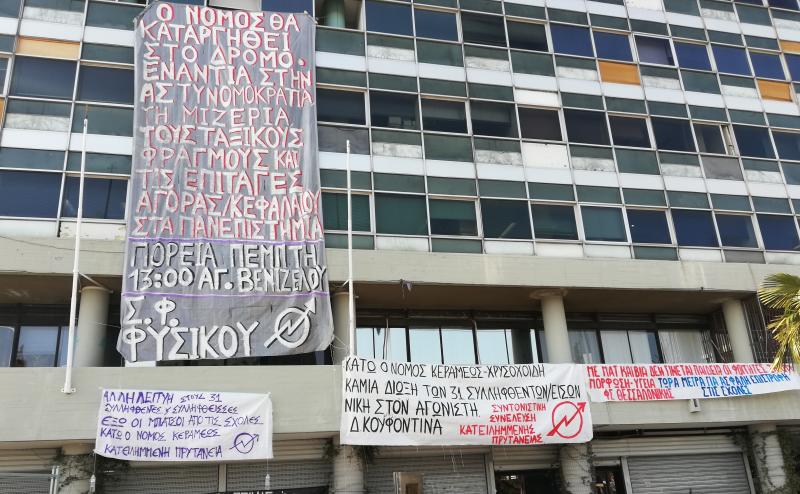 Ο ΝΟΜΟΣ ΘΑ
ΚΑΤΑΡΓΗΘΕΙ
ΣΤΟ ΔΡΟΜΟ.
ΕΝΑΝΤΙΑ ΣΤΗΝ
ΑΣΤΥΝΟΜΟΚΡΑΤΙΑ
ΤΗ ΜΙΖΕΡΙΑ
ΤΟΥΣ ΤΑΞΙΚΟΥΣ
ΦΡΑΓΜΟΥΣ ΚΑΙ
ΤΙΣ ΕΠΙΤΑΓΕΣ
ΑΓΟΡΑΣ/ΚΕΦΑΛΑΙΟΥ
ΣΤΑ ΠΑΝΕΠΙΣΤΗΜΙΑ
ΠΟΡΕΙΑ ΠΕΜΠΤΗ
13:00 ΑΓ. ΒΕΝΙΖΕΛΟΥ
Σ.Φ.
ΦΥΣΙΚΟΥ
ΑΛΛΗΛΕΓΓΥΗ ΣΤΟΥΣ 31
ΣΥΛΛΗΦΘΕΝΤΕΣ Υ ΣΥΛΛΗΦΘΕΙΣΣΕΣ
ΕΞΩ ΟΙ ΜΠΑΤΣΟΙ ΑΠΟ ΤΙΣ ΣΧΟΛΕΣ
ΚΑΤΩ Ο ΝΟΜΟΣ ΚΕΡΑΜΕΩΣ
ΚΑΤΕΙΛΗΜΜΕΝΗ ΠΡΥΤΑΝΕΙΑ
ΚΑΤΩ Ο ΝΟΜΟΣ ΚΕΡΑΜΕΩΣ-ΧΡΥΣΟΧΟΙΔΗ
ΚΑΜΙΑ ΔΙΩΞΗ ΤΩΝ 31 ΣΥΛΛΗΦΘΕΝΤΩΝ/ΕΙΣΩΝ
ΝΙΚΗ ΣΤΟΝ ΑΓΩΝΙΣΤΗ
Δ. ΚΟΥΦΟΝΤΙΝΑ
ΣΥΝΤΟΝΙΣΤΙΚΗ
ΣΥΝΕΛΕΥΣΗ
ΚΑΤΕΙΛΗΜΜΕΝΗΣ
ΠΡΥΤΑΝΕΙΑΣ
ΜΕ ΜΑΤ ΚΑΙ ΒΙΑ ΔΕΝ ΓΙΝΕΤΑΙ ΠΑΙΔΕΙΑ ΟΙ ΦΟΙΤΗΤΕΣ
ΜΟΡΦΩΣΗ-ΥΓΕΙΑ ΤΩΡΑ ΜΕΤΡΑ ΓΙΑ ΑΣΦΑΛΗ ΕΠΙΣΤΡΟΦΗ
ΦΣ ΘΕΣΣΑΛΟΝΙΚΗΣ ΣΤΙΣ ΣΧΟΛΕΣ